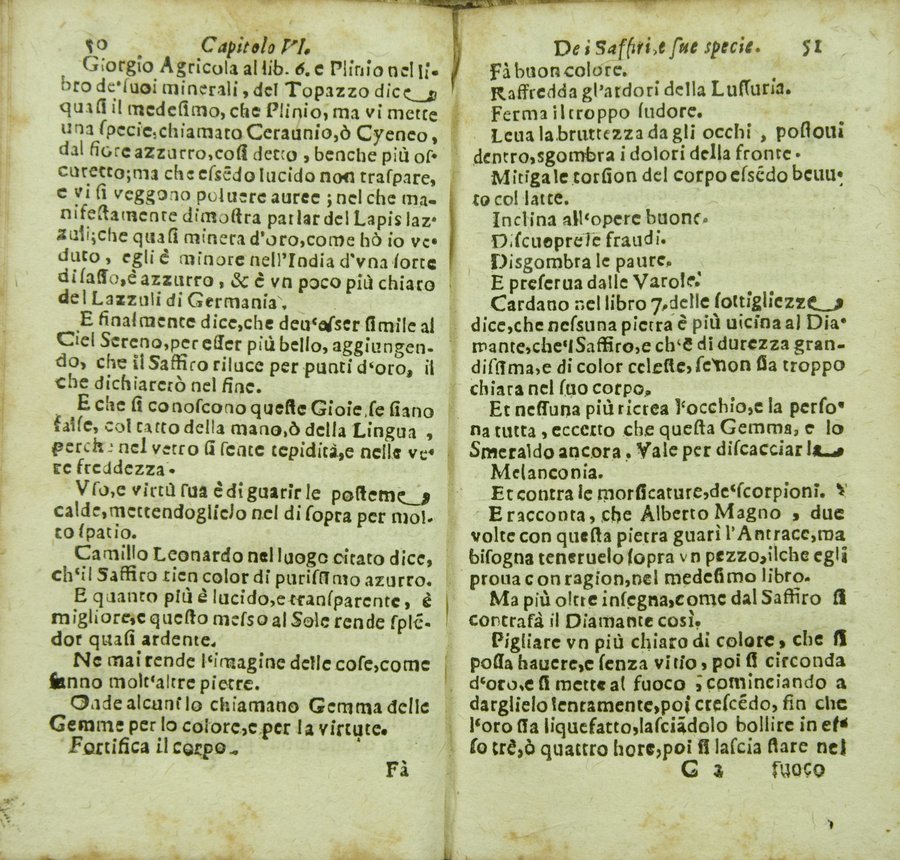 50 Capitolo VI.
Giorgio Agricola al lib. 6. e Plinio nel li-
bro de'suoi minerali, del Topazzo dice,
quaſi il medeſimo, che Plinio, ma vi mette
una ſpecie, chiamato Ceraunio, ò Cyeneo,
dal fiore azzurro, coſi detto, benche più oſ-
curetto; ma che eſſẽdo lucido non traſpare,
e vi ſi veggono poluere auree; nel che ma-
nifeſtamente dimoſtra parlar del Lapis laz-
zuli; che quaſi minera d'oro, come hò io ve-
duto, egli è minore nell'India d'vna ſorte
di ſaſſo, è azzurro, & è vn poco più chiaro
del Lazzuli di Germania.
E finalmente dice, che deu'eſſer ſimile al
Ciel Sereno, per eſſer più bello, aggiungen-
do, che il Saffiro riluce per punti d'oro, il
che dichiarerò nel fine.
E che ſi conoſcono queſte Gioie, ſe ſiano
falſe, col tatto della mano, ò della Lingua,
perche nel vetro ſi ſente tepidità, e nelle ve-
re freddezza.
Vſo, e virtù ſua è di guarir le poſteme,
calde, mettendoglielo nel di ſopra per mol-
to ſpatio.
Camillo Leonardo nel luogo citato dice,
ch'il Saffiro tien color di puriſſimo azzurro.
E quanto più è lucido, e tranſparente, è
migliore, e queſto meſſo al Sole rende ſplẽ-
dor quaſi ardente.
Ne mai rende l'imagine delle coſe, come
fanno molt'altre pietre.
Onde alcuni lo chiamano Gemma delle
Gemme per lo colore, e per la virtute.
Fortifica il corpo.
Fà
De i Saffiri, e ſue ſpecie. 51
Fà buon colore.
Raffredda gl'ardori della Luſſuria.
Ferma il troppo ſudore.
Leua la bruttezza da gli occhi, poſtoui
dentro, sgombra i dolori della fronte.
Mitiga le torſion del corpo eſſẽdo beuu-
to col latte.
Inclina all'opere buone.
Diſcuopre le fraudi.
Disgombra le paure.
E preſerua dalle Varole.
Cardano nel libro 7. delle ſottigliezze,
dice, che neſſuna pietra è più uicina al Dia-
mante, che'l Saffiro, e ch'è di durezza gran-
diſſima, e di color celeſte, ſe non ſia troppo
chiara nel ſuo corpo.
Et neſſuna più ricrea l'occhio, e la perſo-
na tutta, eccetto che queſta Gemma, e lo
Smeraldo ancora. Vale per diſcacciar la
Melanconia.
Et contra le morſicature, de'ſcorpioni.
E racconta, che Alberto Magno, due
volte con queſta pietra guarì l'Antrace, ma
biſogna teneruelo ſopra vn pezzo, ilche egli
proua con ragion, nel medeſimo libro.
Ma più oltre inſegna, come dal Saffiro ſi
contrafà il Diamante così.
Pigliare vn più chiaro di colore, che ſi
poſſa hauere, e ſenza vitio, poi ſi circonda
d'oro, e ſi mette al fuoco; cominciando a
darglielo lentamente, poi creſcẽdo, fin che
l'oro ſia liquefatto, laſciãdolo bollire in eſ-
ſo trè, ò quattro hore, poi ſi laſcia ſtare nel
G 2 fuoco